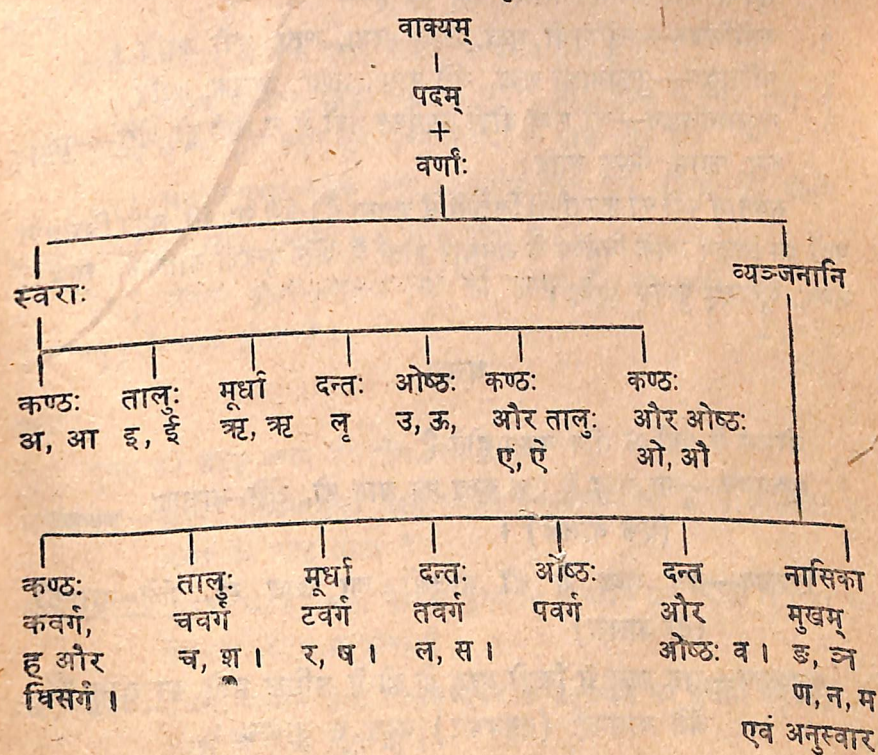 वाक्यम्
पदम्
+
वर्णाः
स्वराः
व्यञ्जनानि
कण्ठः
अ, आ
तालुः
इ, ई
मूर्धा
ऋ, ऋ
दन्तः
लृ
ओष्ठः
उ, ऊ,
कण्ठः
और तालुः
ए, ऐ
कण्ठः
और ओष्ठः
ओ, औ
कण्ठः
कवर्ग,
ह और
विसर्ग ।
तालुः
चवर्ग
च, श ।
मूर्धा
टवर्ग
र, ष ।
दन्तः
तवर्ग
ल, स ।
ओष्ठः
पवर्ग
दन्त
और
ओष्ठः व ।
नासिका
मुखम्
ङ, ञ
ण, न, म
एवं अनुस्वार